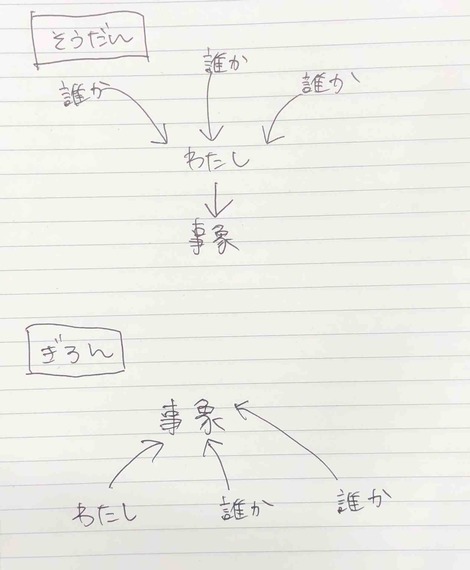 そうだん
誰か 誰か 誰か
わたし
事象
ぎろん
事象
わたし 誰か 誰か